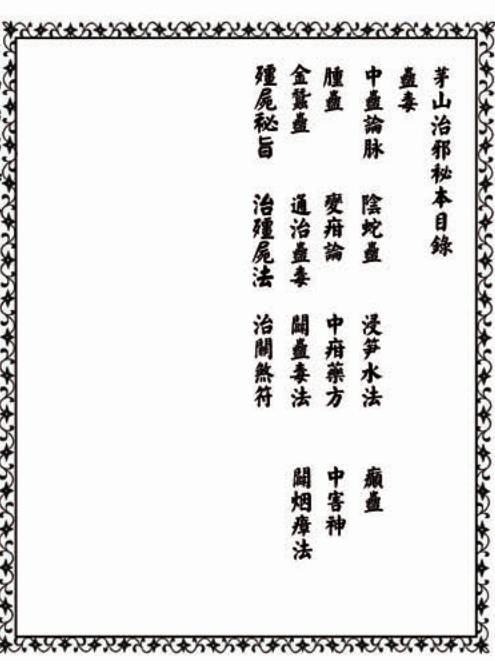 茅山治邪秘本目錄
蠱毒
中蠱論脉 陰蛇蠱 浸笋水法 癲蠱
腫蠱 變疳論 中疳藥方 中害神
金蠶蠱 通治蠱毒 闢蠱毒法 闢烟瘴法
殭屍秘旨 治殭屍法 治關煞符